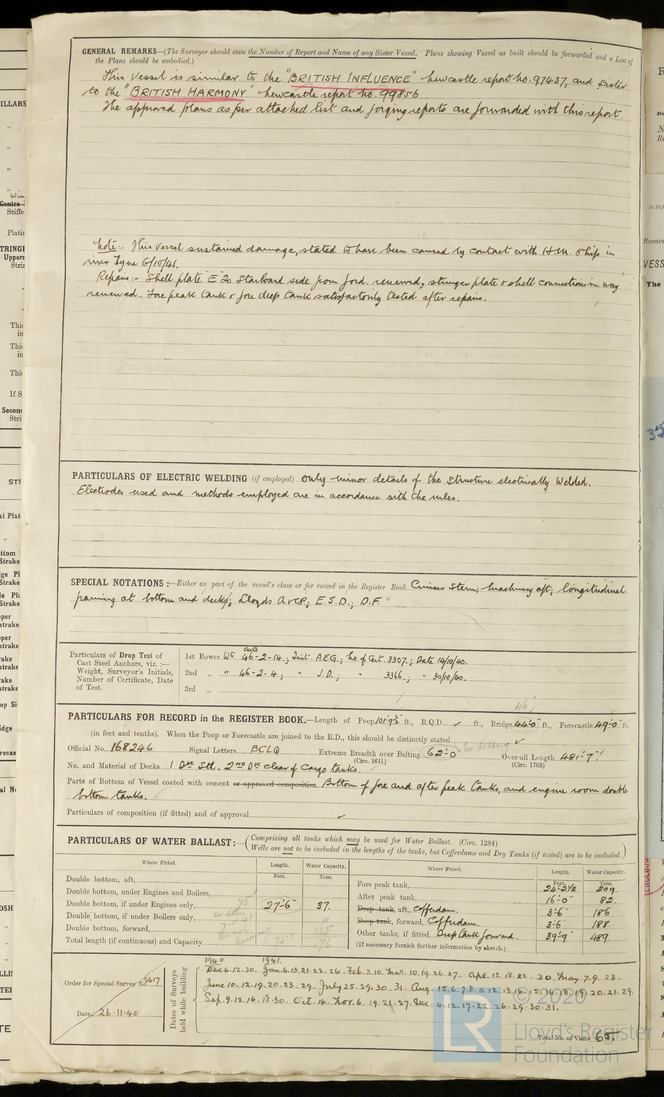 GENERAL REMARKS—(The Surveyor should state the Number of Report and Name of any Sister Vessel. Plans showing Vessel as built should be forwarded and a List of
the Plans should be embodied.)
This Vessel is similar to the "BRITISH INFLUENCE" Newcastle report no. 97437, and Sister
to the "BRITISH HARMONY" Newcastle report no. 99856
The approved plans as per attached list and forging reports are forwarded with this report
Note:- This vessel sustained damage, stated to have been caused by contact with H.M. Ship in
river Tyne 6/10/41.
Repairs:- Shell plate E 20 Starboard side from ford. renewed, stringer plate & shell connections in way
renewed. Fore peak tank & fore deep tank satisfactorily tested after repairs.
PARTICULARS OF ELECTRIC WELDING (if employed) Only minor details of the structure electrically welded.
Electrodes used and methods employed are in accordance with the rules.
SPECIAL NOTATIONS:—Either as part of the vessel's class or for record in the Register Book Cruiser Stern; Machinery aft; longitudinal
framing at bottom and decks; Lloyds A & CP; E.S.D.; D.F.
Particulars of Drop Test of
Cast Steel Anchors, viz.:—
Weight, Surveyor's Initials,
Number of Certificate, Date
of Test.
1st Bower Wt 46-2-14.; Init. A.E.G.; No. of Cert. 3307.; Date 14/10/40.
2nd " " 46-2-4; " J.D.; " 3366.; " 30/10/40.
3rd "
PARTICULARS FOR RECORD in the REGISTER BOOK.—Length of Poop ft., R.Q.D. ✓ ft., Bridge 44'0" ft., Forecastle 49'0" ft.
(in feet and tenths). When the Poop or Forecastle are joined to the B.D., this should be distinctly stated
Official No. 168246 Signal Letters BCLQ Extreme Breadth over Belting 62'-0" Over-all Length 481'-7"
(Circ. 1611) (Circ. 1703)
No. and Material of Decks 1 Dk Stl. 2nd Dk clear of Cargo tanks.
Parts of Bottom of Vessel coated with cement or approved composition Bottom of fore and after peak tanks, and engine room double
bottom tanks.
Particulars of composition (if fitted) and of approval ✓
PARTICULARS OF WATER BALLAST:—(Comprising all tanks which may be used for Water Ballast. (Circ. 1284)
Wells are not to be included in the lengths of the tanks, but Cofferdams and Dry Tanks (if tested) are to be included.)
Where Fitted. Length. Water Capacity. Where Fitted. Length. Water Capacity.
Feet. Tons. Feet. Tons.
Double bottom, aft,
Double bottom, under Engines and Boilers,
Double bottom, if under Engines only, 27'-6" 37.
Double bottom, if under Boilers only,
Double bottom, forward,
Total length (if continuous) and Capacity
Fore peak tank, 24'-2½ 209.
After peak tank, 16'-0" 82.
Deep tank, aft, Cofferdam. 3'-6" 186
Deep tank, forward, Cofferdam. 3'-6 188
Other tanks, if fitted, Deep Tank forward. 39'-9" 489.
(If necessary furnish further information by sketch.)
Order for Special Survey No. 5617
Date 26-11-40
Dates of Surveys
held while building
1940 1941.
Dec 6.12.30. Jan. 6.13.21.22.26. Feb. 3.10. Mar. 10.19.26.27. Apl. 12.18.22.30. May 7.9.23.
June 10.12.19.20.23.29. July 25.29.30.31. Aug.
Sep. 9.12.16.18.30. Oct. 14. Nov. 6.19.21.27. Dec. 4.12.17.22.26.29.30.31.
Total No. of Visits 65.
© 2020
Lloyd's Register
Foundation
LR